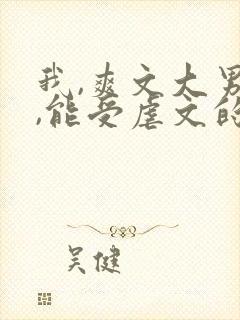 我,爽文大男
,能受虐文的
吴健